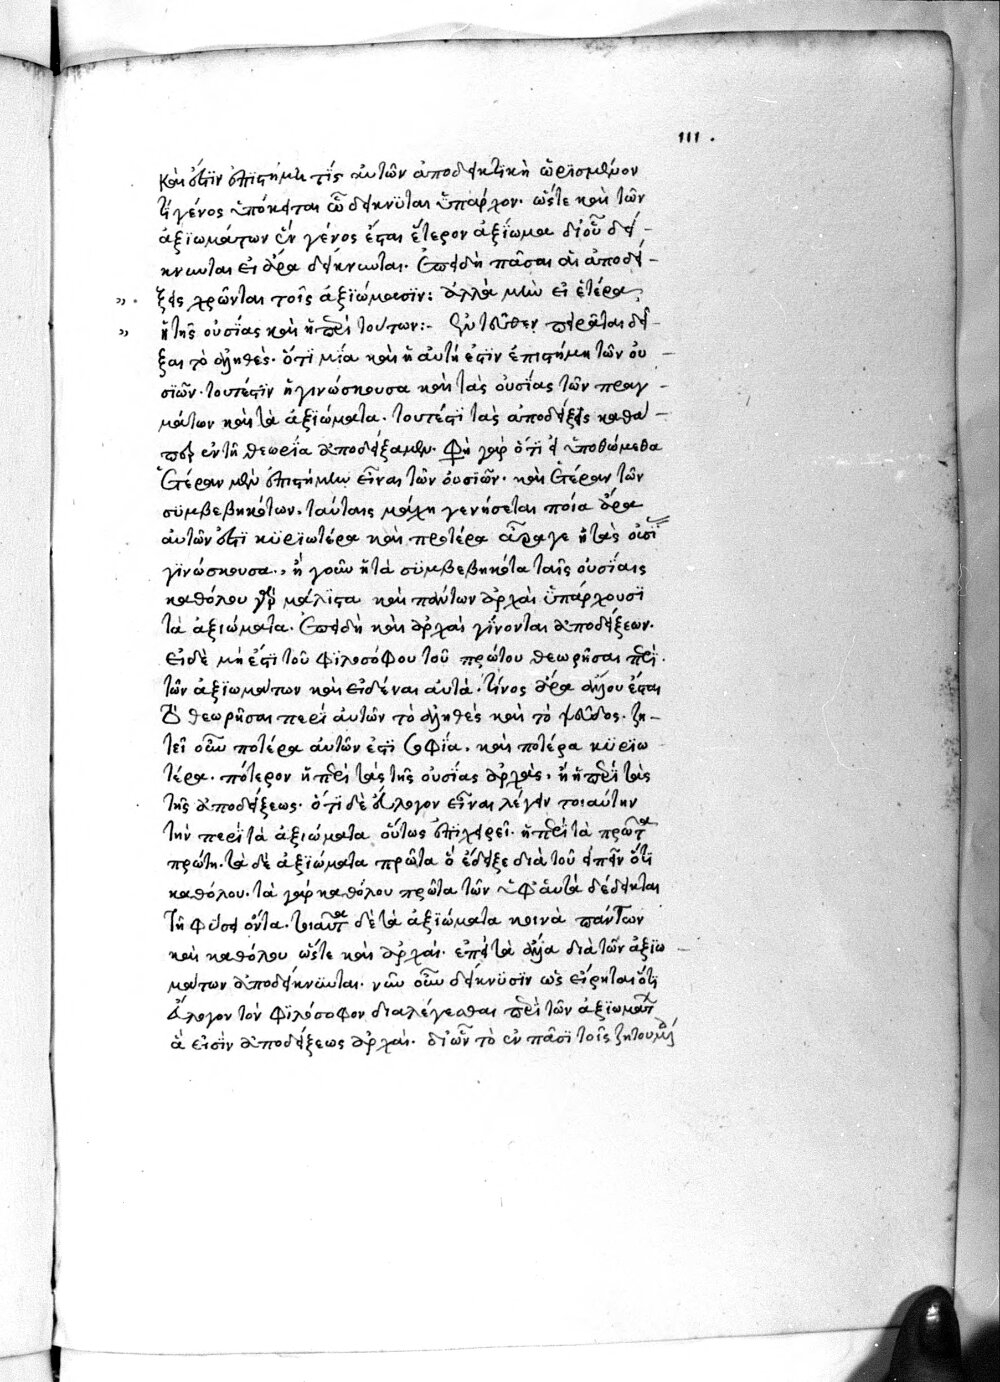 111.
καὶ ἔστιν ἐπιστήμη τίς αὐτῶν ἀποδεικτικὴ ὡρισμένον
τὶ γένος ὑπόκειται ὧ δεικνύται ὑπάρχον. ὥστε καὶ τῶν
ἀξιωμάτων ἓν γένος ἔσται ἕτερον ἀξίωμα δι' οὗ δεί-
κνυνται εἰ ἄρα δείκνυνται. ἐπειδὴ πᾶσαι αἱ ἀποδεί-
ξεις χρῶνται τοῖς ἀξιώμασιν: ἀλλὰ μὴν εἰ ἑτέρα
ἡ τῆς οὐσίας καὶ ἡ περὶ τούτων:- ἐντεῦθεν πειρᾶται δεῖ-
ξαι τὸ ἀληθές. ὅτι μία καὶ ἡ αὐτή ἐστιν ἐπιστήμη τῶν οὐ-
σιῶν. τουτέστιν ἡ γινώσκουσα καὶ τὰς οὐσίας τῶν πραγ-
μάτων καὶ τὰ ἀξιώματα. τουτέστι τὰς ἀποδείξεις καθά-
περ ἐν τῇ θεωρίᾳ ἀπεδείξαμεν. φησὶ γὰρ ὅτι εἰ ὑποθώμεθα
ἑτέραν μὲν ἐπιστήμην εἶναι τῶν οὐσιῶν. καὶ ἑτέραν τῶν
συμβεβηκότων. ταύταις μάχη γενήσεται ποία ἄρα
αὐτῶν ἐστὶ κυριωτέρα καὶ προτέρα ἆραγε ἡ τὰς οὐσί
γινώσκουσα., ἢ γοῦν ἡ τὰ συμβεβηκότα ταῖς οὐσίαις
καθόλου γὰρ μάλιστα καὶ πάντων ἀρχαὶ ὑπάρχουσι
τὰ ἀξιώματα. ἐπειδὴ καὶ ἀρχαὶ γίνονται ἀποδείξεων.
εἰ δὲ μή ἐστι τοῦ φιλοσόφου τοῦ πρώτου θεωρῆσαι περὶ
τῶν ἀξιωμάτων καὶ εἰδέναι αὐτά. τίνος ἄρα ἄλλου ἔσται
τὸ θεωρῆσαι περὶ αὐτῶν τὸ ἀληθὲς καὶ τὸ ψεῦδος. ζη-
τεῖ οὖν ποτέρα αὐτῶν ἐστὶ σοφία. καὶ ποτέρα κυριω
τέρα. πότερον ἡ περὶ τὰς τῆς οὐσίας ἀρχάς. ἢ ἡ περὶ τὰς
τῆς ἀποδείξεως. ὅτι δὲ εὔλογον εἶναι λέγειν τοιαύτην
τὴν περὶ τὰ ἀξιώματα οὕτως ἐπιχειρεῖ. ἡ περὶ τὰ πρῶτα
πρώτη. τὰ δὲ ἀξιώματα πρῶτα ὃ ἔδειξε διὰ τοῦ εἰπεῖν ὅτι
καθόλου. τὰ γὰρ καθόλου πρῶτα τῶν ὑφ' ἑαυτὰ δέδεικται
τῇ φύσει ὄντα. τοιαῦτα δὲ τὰ ἀξιώματα κοινὰ πάντων
καὶ καθόλου ὥστε καὶ ἀρχαί. ἐπεὶ τὰ ἄλλα διὰ τῶν ἀξιω-
μάτων ἀποδείκνυνται. νῦν οὖν δείκνυσιν ὡς εἴρηται ὅτι
εὔλογον τὸν φιλόσοφον διαλέγεσθαι περὶ τῶν ἀξιωμάτ
ἅ εἰσὶν ἀποδείξεως ἀρχαί. δι' ὧν τὸ ἐν πᾶσι τοῖς ζητουμέ